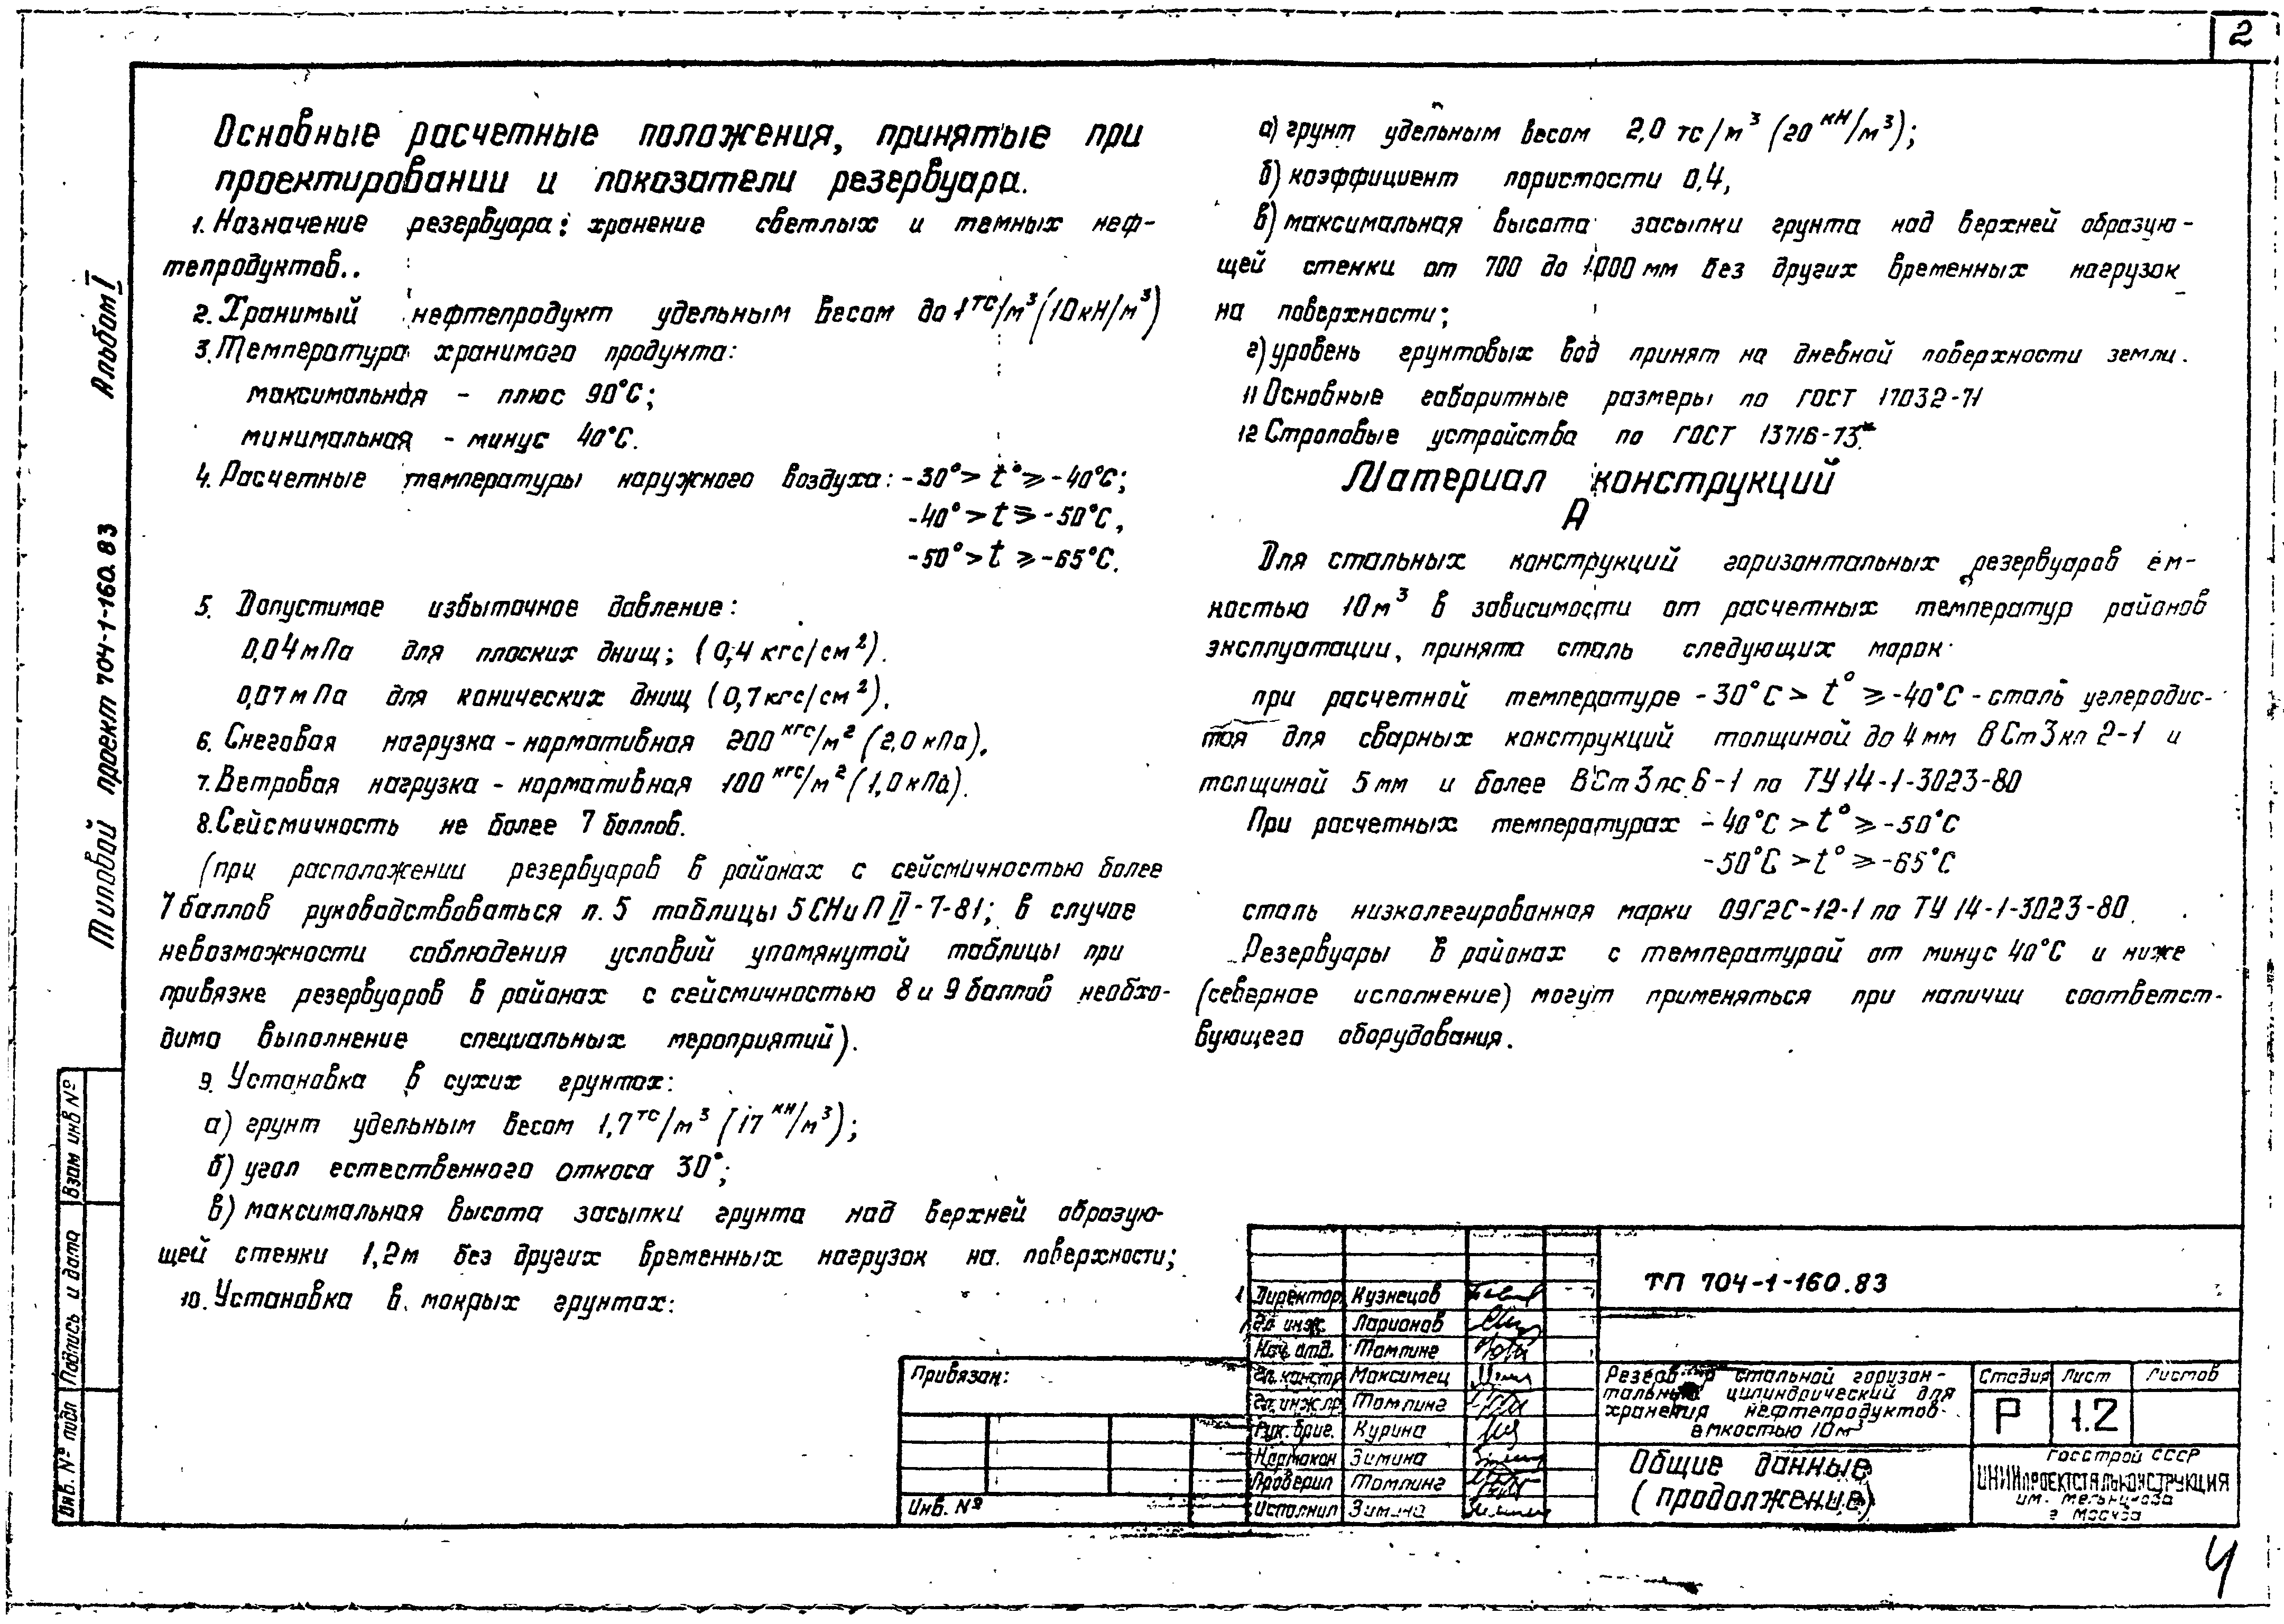 2
Основные расчетные положения, принятые при
проектировании и показатели резервуара.
1. Назначение резервуара: хранение светлых и темных неф-
тепродуктов..
2. Хранимый нефтепродукт удельным весом до 1 тс/м³ (10кН/м³)
3. Температура хранимого продукта:
максимальная - плюс 90°С;
минимальная - минус 40°С.
4. Расчетные температуры наружного воздуха: -30°> t° ⩾ -40°С;
-40° > t ⩾ -50°С,
-50° > t ⩾ -65°С.
5. Допустимое избыточное давление:
0,04 мПа для плоских днищ; (0,4 кгс/см²).
0,07 мПа для конических днищ (0,7 кгс/см²).
6. Снеговая нагрузка - нормативная 200 кгс/м² (2,0 кПа).
7. Ветровая нагрузка - нормативная 100 кгс/м² (1,0 кПа).
8. Сейсмичность не более 7 баллов.
(при расположении резервуаров в районах с сейсмичностью более
7 баллов руководствоваться п. 5 таблицы 5 СНиП II-7-81; в случае
невозможности соблюдения условий упомянутой таблицы при
привязке резервуаров в районах с сейсмичностью 8 и 9 баллов необхо-
димо выполнение специальных мероприятий).
9. Установка в сухих грунтах:
а) грунт удельным весом 1,7 тс/м³ (17 кН/м³);
б) угол естественного откоса 30°;
в) максимальная высота засыпки грунта над верхней образую-
щей стенки 1,2м без других временных нагрузок на поверхности;
10. Установка в мокрых грунтах:
а) грунт удельным весом 2,0 тс/м³ (20 кН/м³);
б) коэффициент пористости 0,4,
в) максимальная высота засыпки грунта над верхней образую-
щей стенки от 700 до 1000 мм без других временных нагрузок
на поверхности;
г) уровень грунтовых вод принят на дневной поверхности земли.
11 Основные габаритные размеры по ГОСТ 17032-71
12 Строповые устройства по ГОСТ 13716-73*
Материал конструкций
А
Для стальных конструкций горизонтальных резервуаров ем-
костью 10м³ в зависимости от расчетных температур районов
эксплуатации, принята сталь следующих марок
при расчетной температуре -30°С > t° ⩾ -40°С - сталь углеродис-
тая для сварных конструкций толщиной до 4 мм ВСт3кп 2-1 и
толщиной 5 мм и более ВСт3пс 6-1 по ТУ 14-1-3023-80
При расчетных температурах -40°С > t° ⩾ -50°С
-50°С > t° ⩾ -65°С
сталь низколегированная марки 09Г2С-12-1 по ТУ 14-1-3023-80.
Резервуары в районах с температурой от минус 40°С и ниже
(северное исполнение) могут применяться при наличии соответст-
вующего оборудования.
Альбом I
Типовой проект 704-1-160.83
Взам инв №
Подпись и дата
Инв. № подл
Привязан:
Инв. №
Директор Кузнецов
Гл. инж. Ларионов
Нач. отд. Томлинг
Гл. констр Максимец
Гл. инж. пр Томлинг
Рук. бриг. Курина
Нормокон Зимина
Проверил Томлинг
Исполнил Зимина
ТП 704-1-160.83
стальной горизон-
цилиндрический для
хранения нефтепродуктов
емкостью 10м³
Стадия Лист Листов
Р 1.2
Общие данные
(продолжение)
Госстрой СССР
ЦНИИпроектстальконструкция
им. Мельникова
г Москва
4